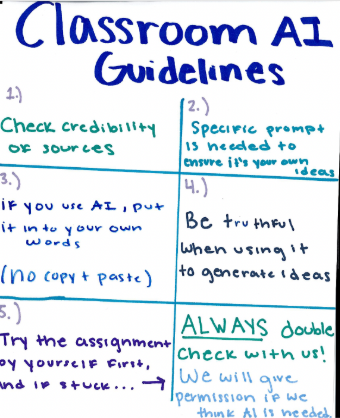 Classroom AI
Guidelines
1.)
Check credibility
of sources
2.)
Specific prompt
is needed to
ensure it's your own
ideas
3.)
if you use AI, put
it in to your own
words
(no copy + paste)
4.)
Be truthful
when using it
to generate ideas
5.)
Try the assignment
by yourself first,
and if stuck... →
ALWAYS double
check with us!
We will give
permission if we
think AI is needed.